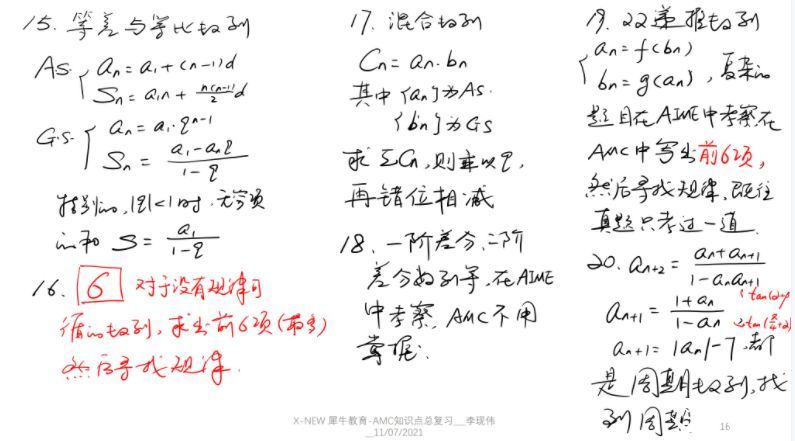 15. 等差与等比数列
As. { an = a1 + (n-1)d
Sn = a1n + n(n-1)/2 d
G.s. { an = a1·q^(n-1)
Sn = (a1-anq)/(1-q)
特别的, |q|<1时, 无穷项
的和 S = a1/(1-q)
16. 6 对于没有规律可
循的数列, 求出前6项(最多)
然后寻找规律.
17. 混合数列
Cn = an·bn
其中{an}为As.
{bn}为Gs
求ΣCn, 则乘以q,
再错位相减
18. 一阶差分, 二阶
差分数列等, 在AIME
中考察, AMC不用
掌握.
19. 双递推数列
{ an = f(bn)
bn = g(an), 复杂的
题目在AIME中考察, 在
AMC中写出前6项,
然后寻找规律, 既往
真题只考过一道.
20. an+2 = (an+an+1)/(1-anan+1)
an+1 = (1+an)/(1-an)
an+1 = |an|-7, 都
是周期数列, 找
到周期
X-NEW 犀牛教育-AMC知识点总复习__李现伟
__11/07/2021
16